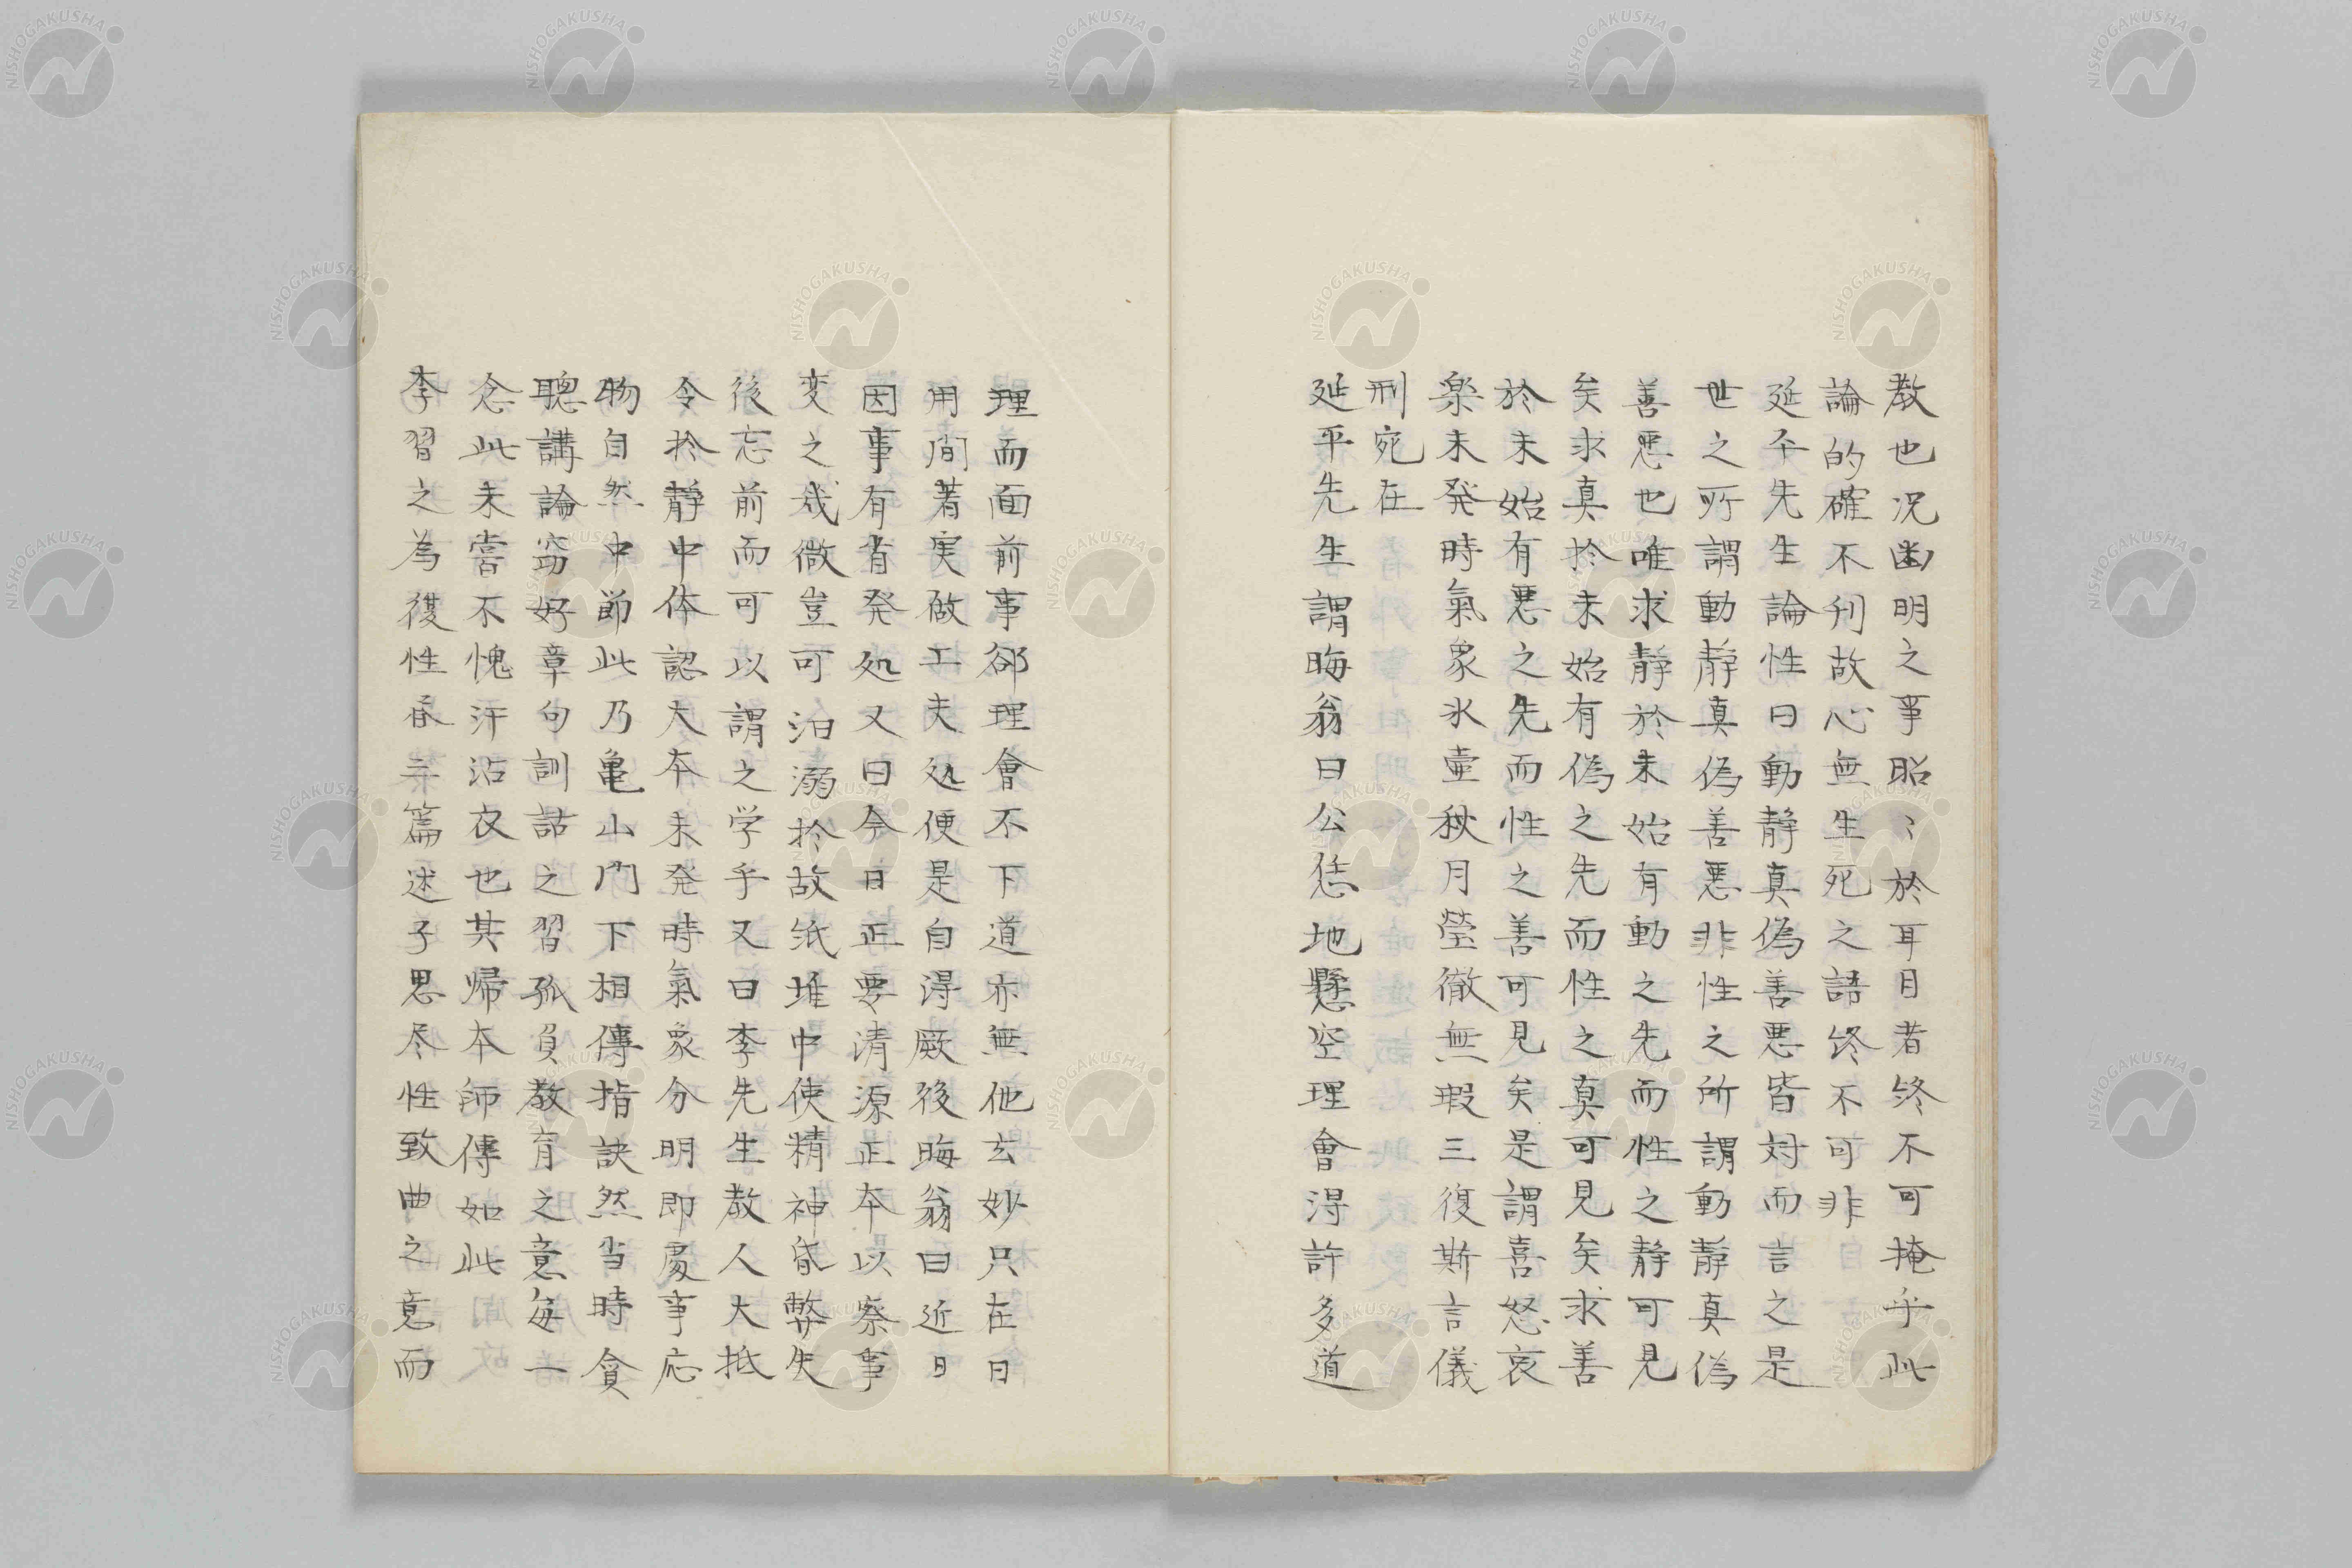 教也況幽明之事昭〻於耳目者終不可掩乎此
論的確不刊故心無生死之語終不可非
延平先生論性曰動静真偽善悪皆対而言之是
世之所謂動静真偽善悪非性之所謂動静真偽
善悪也唯求静於未始有動之先而性之静可見
矣求真於未始有偽之先而性之真可見矣求善
於未始有悪之先而性之善可見矣是謂喜怒哀
楽未発時氣象氷壷秋月瑩徹無瑕三復斯言儀
刑宛在
延平先生謂晦翁曰公恁地懸空理會得許多道
理而面前事郤理會不下道亦無他玄妙只在日
用間著実做工夫処便是自得厥後晦翁曰近日
因事有省発処又曰今日正要清源正本以察事
変之幾微豈可汨溺於故紙堆中使精神昏弊失
後忘前而可以謂之学乎又曰李先生教人大抵
令於静中体認大本未発時氣象分明即處事応
物自然中節此乃亀山門下相傳指訣然当時貪
聴講論竊好章句訓詁之習孤負教育之意毎一
念此未嘗不愧汗沾衣也其帰本師傳如此
李習之為復性書三篇述子思尽性致曲之意而
NISHOGAKUSHA